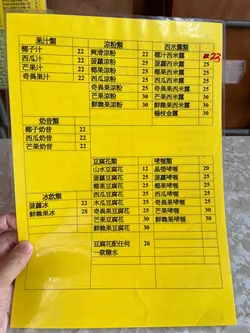 果汁類
椰子汁 22
西瓜汁 22
芒果汁 22
奇異果汁 22
涼粉類
爽滑涼粉 22
菠蘿涼粉 25
椰果涼粉 25
西瓜涼粉 25
奇異果涼粉 25
芒果涼粉 25
鮮雜果涼粉 30
西米露類
椰汁西米露 #23
菠蘿西米露 25
椰果西米露 25
西瓜西米露 25
奇異果西米露 25
芒果西米露 25
鮮雜果西米露 30
楊枝金露 30
奶昔類
椰子奶昔 22
西瓜奶昔 22
芒果奶昔 22
冰飲類
菠蘿冰 22
鮮雜果冰 28
豆腐花類
山水豆腐花 12
菠蘿豆腐花 25
椰果豆腐花 25
西瓜豆腐花 25
木瓜豆腐花 25
奇異果豆腐花 25
芒果豆腐花 25
鮮雜果豆腐花 30
豆腐花配任何 26
一款糖水
啫喱類
晶瑩啫喱 20
菠蘿啫喱 25
椰果啫喱 25
西瓜啫喱 25
奇異果啫喱 25
芒果啫喱 25
鮮雜果啫喱 30